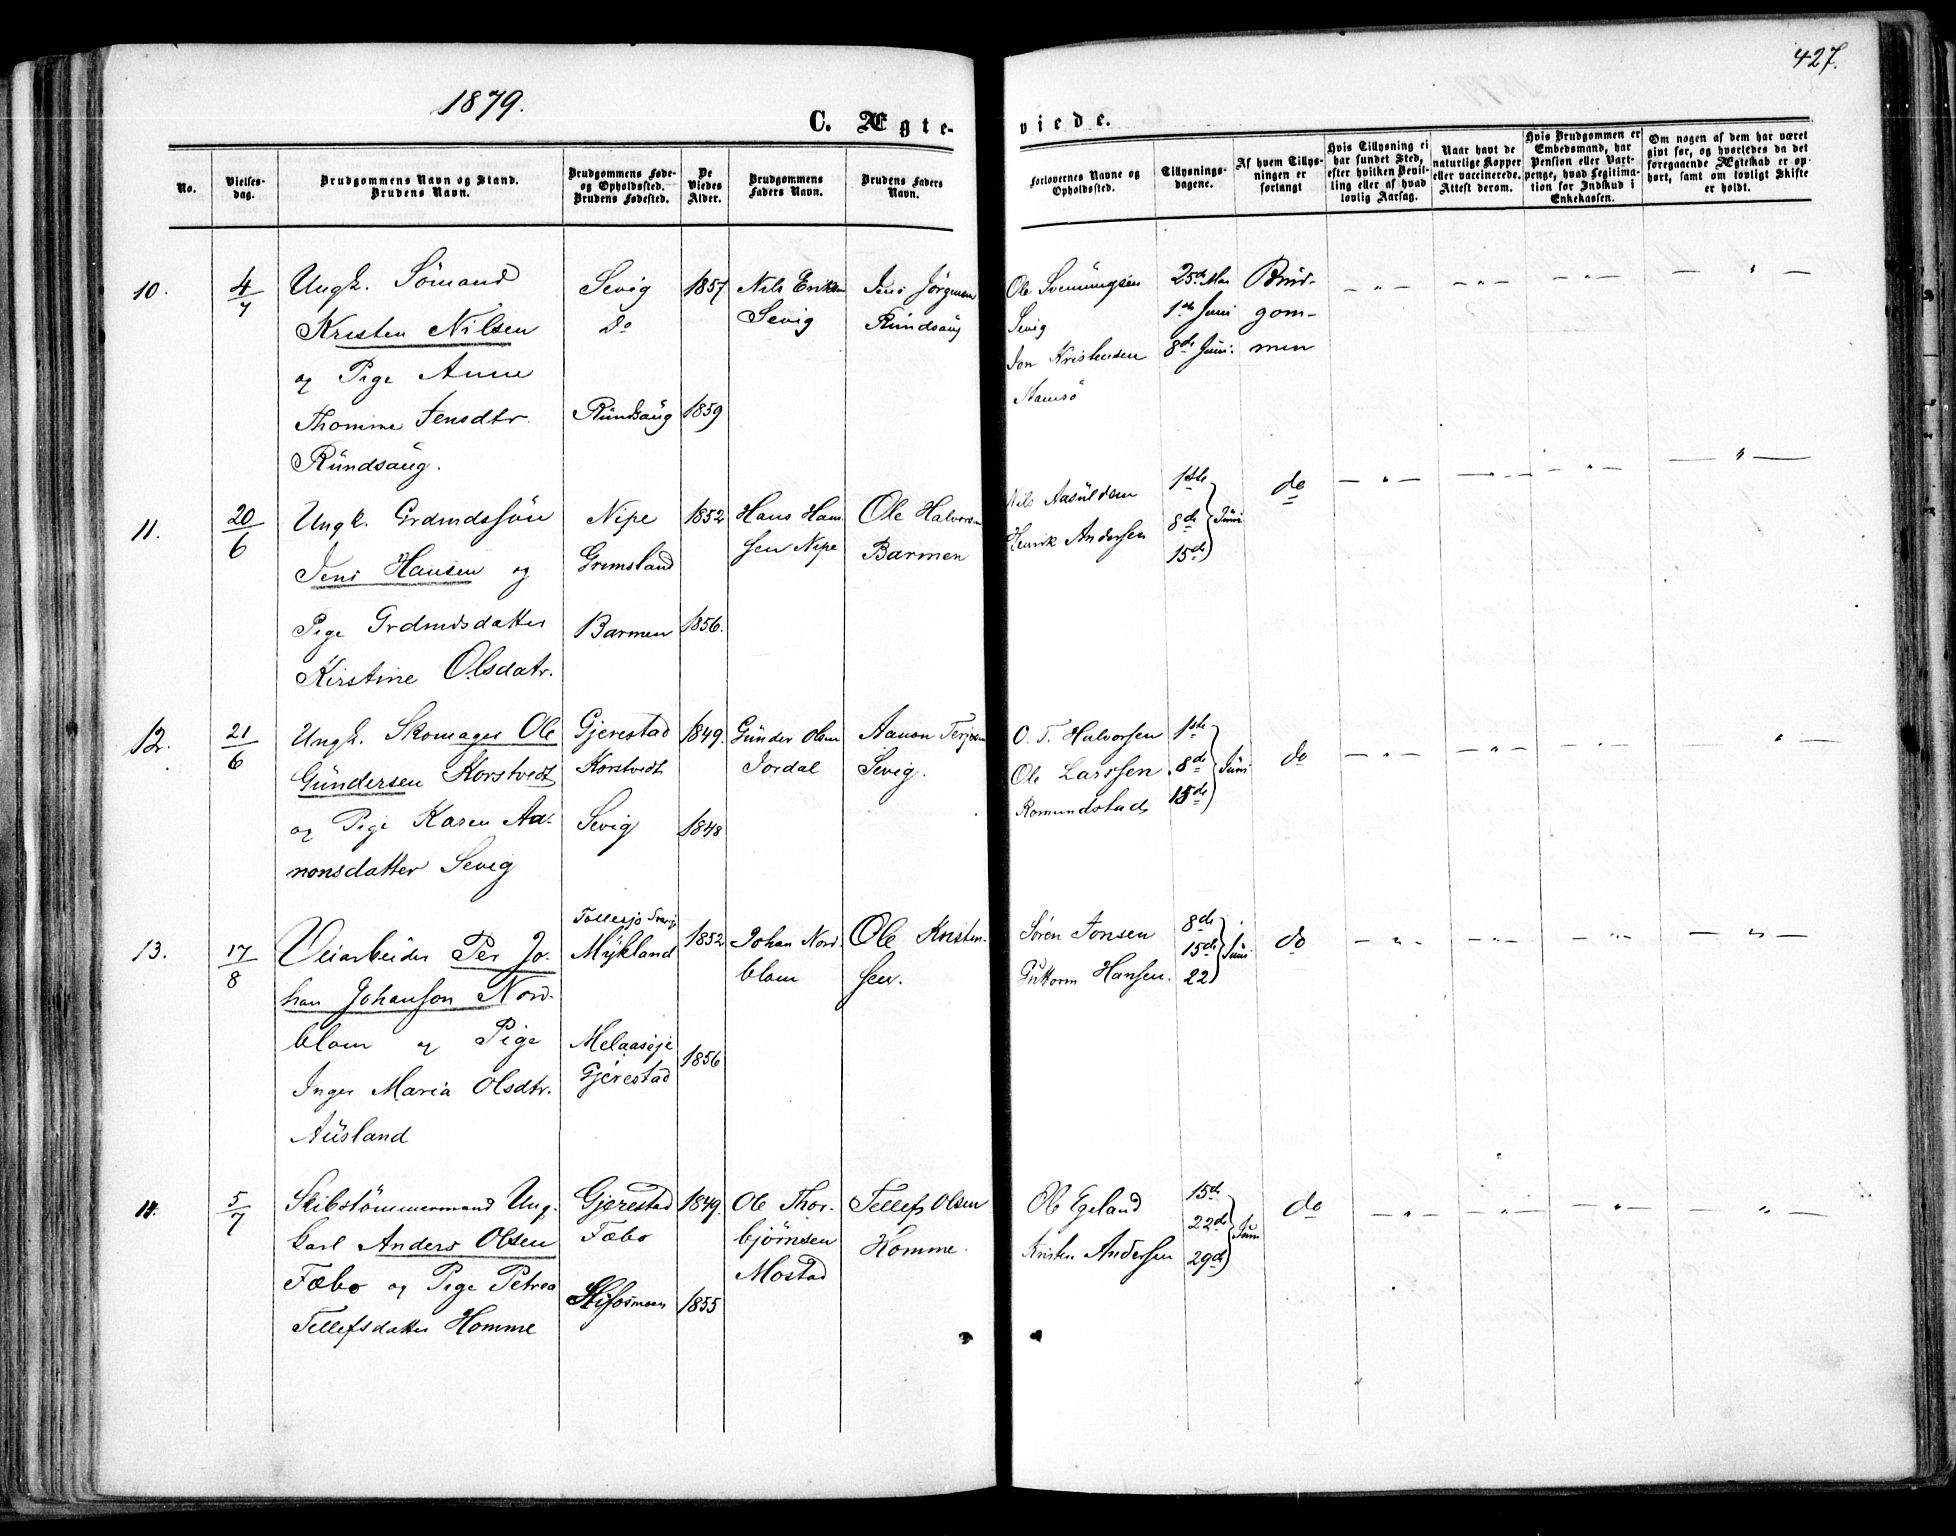 427.
1879.
C. Ægte-
viede.
No.
Vielses-
dag.
Brudgommens Navn og Stand.
Brudens Navn.
Brudgommens Føde-
og Opholdssted.
Brudens Fødested.
De
Viedes
Alder.
Brudgommens
Faders Navn.
Brudens Faders
Navn.
Forlovernes Navne og
Opholdssted.
Tillysnings-
dagene.
Af hvem Tillys-
ningen er
forlangt
Hvis Tillysning ei
har fundet Sted,
efter hvilken Bevil-
ling eller af hvad
lovlig Aarsag.
Naar havt de
naturlige Kopper
eller vaccinerede.
Attest derom.
Hvis Brudgommen er
Embedsmand, har
Pension eller Vart-
penge, hvad Legitima-
tion for Indskud i
Enkekassen.
Om nogen af dem har været
givt før, og hvorledes da det
foregaaende Ægteskab er op-
hørt, samt om lovligt Skifte
er holdt.
10.
4/7
Ungk. Sømand
Kristen Nilsen
og Pige Anne
Thomine Jensdtr.
Rundsaug.
Sevig
Do
Rundsaug
1857
1859
Nils Eriksen
Sevig
Jens Jørgensen
Rundsaug
Ole Svenningsen
Sevig
Jon Kristensen
Hamsø
25de Mai
1ste Juni
8de Juni.
Brud-
gom-
men
11.
20/6
Ungk. Grdmdssøn
Jens Hansen og
Pige Grdmdsdatter
Kirstine Olsdatr.
Nipe
Gremsland
Barmen
1852
1856.
Hans Han
sen Nipe
Ole Halvorsen
Barmen
Nils
Henrik Andersen
1ste
8de
15de
Juni
do
12.
21/6
Ungk. Skomager Ole
Gundersen Korstvedt
og Pige Karen Aa-
nonsdatter Sevig
Gjerestad
Korstvedt
Sevig
1849.
1848
Gunder Olsen
Jordal
Aanon Terjesen
Sevig.
O. T. Halvorsen
Ole Larssen
Romundstad
1ste
8de
15de
Juni
do
13.
17/8
Veiarbeider Per Jo-
han Johanson Nord-
blom og Pige
Inger Maria Olsdtr.
Ausland
Mykland
Melaasøje
Gjerestad
1852
1856
Johan Nord-
blom
Ole Kristen-
sen.
Søren Jonsen
Guttorm Hansen.
8de
15de
22
Juni
do
14.
5/7
Skibstømmermand Ung-
karl Anders Olsen
Fæbo og Pige Petrea
Tellefsdatter Homme
Gjerestad
Fæbo
1849.
1855
Ole Thor-
bjørnsen
Mostad
Tellefs Olsen
Homme.
Ole Egeland
Kristen Andersen
15de
22de
29de
Juni
do